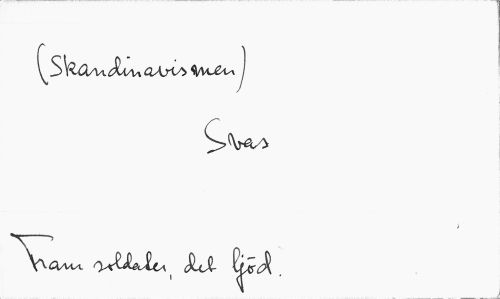 (Skandinavismen)
Svas
Fram soldater, det ljöd.